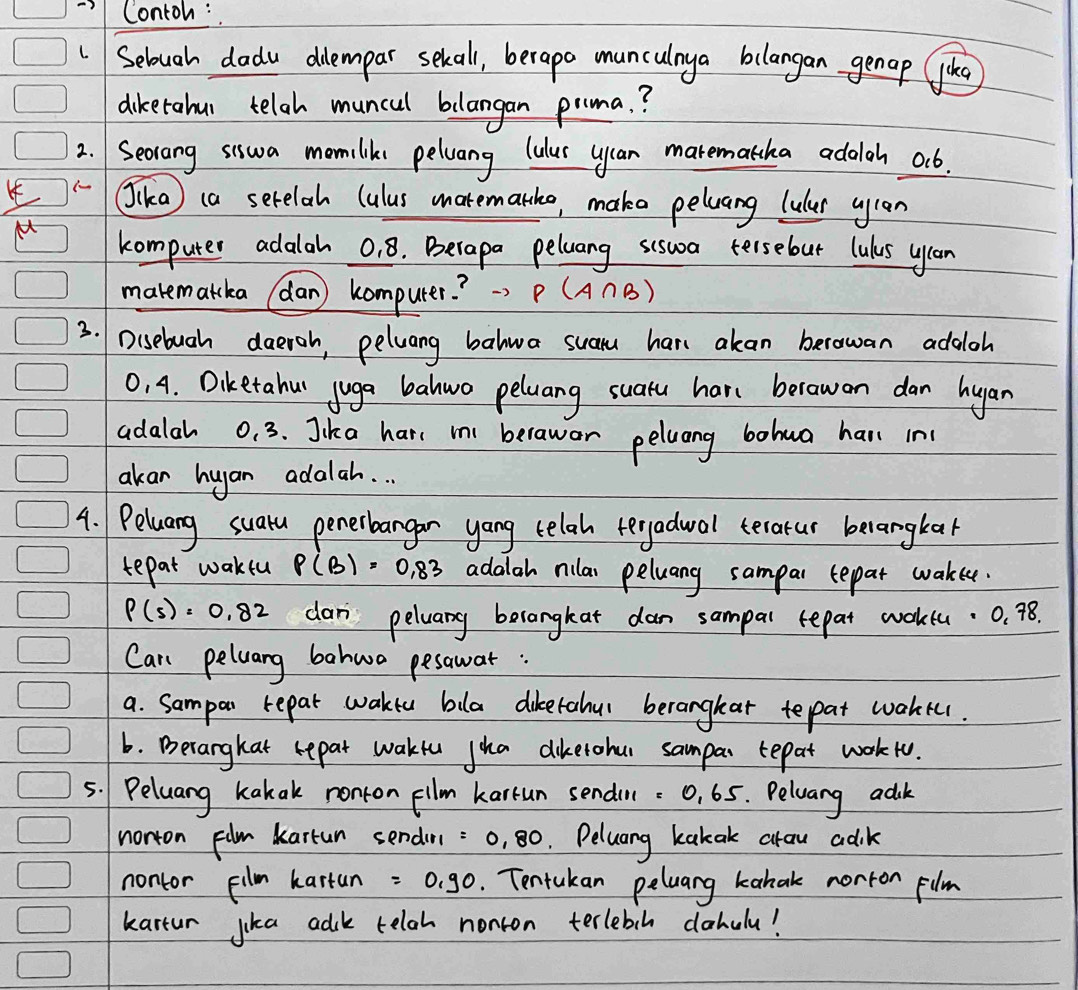 -> Contoh :
1. Sebuah dadu dilempar sekali, berapa munculnya bilangan genap jika
diketahui telah muncul bilangan prima.?
2. Seorang siswa memiliki peluang lulus ujian matematika adalah 0,6.
K Jika ia setelah lulus matematika, maka peluang lulus ujian
M komputer adalah 0,8. Berapa peluang siswa tersebut lulus ujian
matematika dan komputer.? -> P (A∩B)
3. Disebuah daerah, peluang bahwa suatu hari akan berawan adalah
0,4. Diketahui juga bahwa peluang suatu hari berawan dan hujan
adalah 0,3. Jika hari ini berawan peluang bahwa hari ini
akan hujan adalah...
4. Peluang suatu penerbangan yang telah terjadwal teratur berangkat
tepat waktu P(B) = 0,83 adalah nilai peluang sampai tepat waktu.
P(s) = 0,82 dan peluang berangkat dan sampai tepat waktu = 0,78.
Cari peluang bahwa pesawat :
a. Sampai tepat waktu bila diketahui berangkat tepat waktu.
b. Berangkat tepat waktu jika diketahui sampai tepat waktu.
5. Peluang kakak nonton film kartun sendiri = 0,65. Peluang adik
nonton film kartun sendiri = 0,80. Peluang kakak atau adik
nonton film kartun = 0,90. Tentukan peluang kakak nonton film
kartun jika adik telah nonton terlebih dahulu!